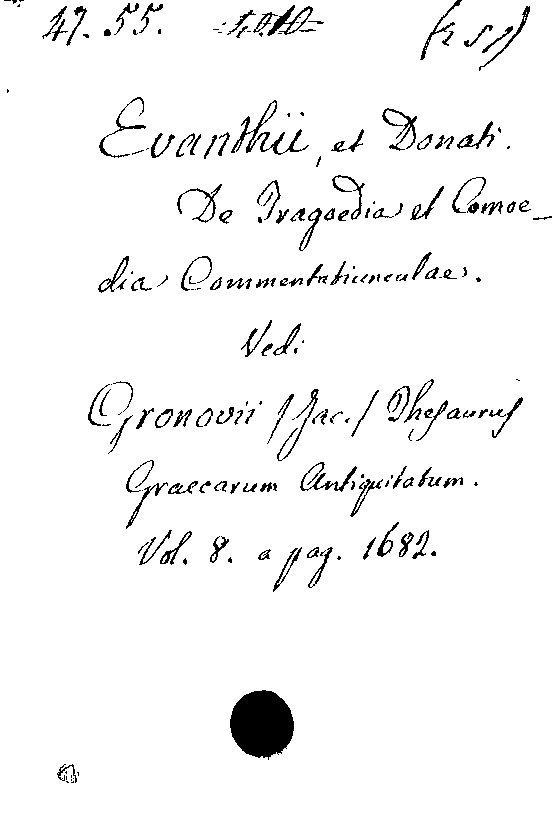 47. 55.
Evanthii, et Donati.
De Tragoedia et Comoe_
dia Commentatiunculae.
Vedi
Gronovii /Jac./ Thesaurus
Graecarum Antiquitatum.
Vol. 8. a pag. 1682.